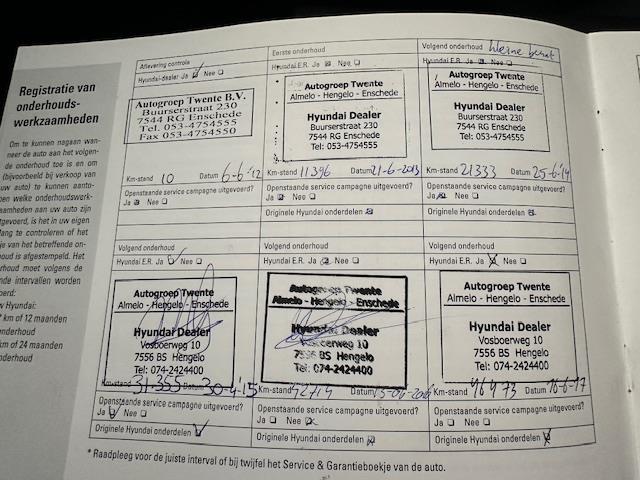 Registratie van
onderhouds-
werkzaamheden
Om te kunnen nagaan wan-
neer de auto aan het volgen-
de onderhoud toe is en om
(bijvoorbeeld bij verkoop van
uw auto) te kunnen aanto-
nen welke onderhoudswerk-
zaamheden aan uw auto zijn
tgevoerd, is het in uw eigen
lang te controleren of het
je van het betreffende on-
houd is afgestempeld. Het
rhoud moet volgens de
nde intervallen worden
oerd:
w Hyundai:
* km of 12 maanden
nderhoud
km of 24 maanden
derhoud
Aflevering controle
Hyundai-dealer Ja Nee
Autogroep Twente B.V.
Buurserstraat 230
7544 RG Enschede
Tel. 053-4754555
Fax 053-4754550
Km-stand 10 Datum 6-6-'12
Openstaande service campagne uitgevoerd?
Ja Nee
Eerste onderhoud
Hyundai E.R. Ja Nee
Autogroep Twente
Almelo - Hengelo - Enschede
Hyundai Dealer
Buurserstraat 230
7544 RG Enschede
Tel: 053-4754555
Km-stand 11396 Datum 21-6-2013
Openstaande service campagne uitgevoerd?
Ja Nee
Originele Hyundai onderdelen
Volgend onderhoud kleine beurt
Hyundai E.R. Ja Nee
Autogroep Twente
Almelo - Hengelo - Enschede
Hyundai Dealer
Buurserstraat 230
7544 RG Enschede
Tel: 053-4754555
Km-stand 21333 Datum 25-6-'14
Openstaande service campagne uitgevoerd?
Ja Nee
Originele Hyundai onderdelen
Volgend onderhoud
Hyundai E.R. Ja Nee
Autogroep Twente
Almelo - Hengelo - Enschede
Hyundai Dealer
Vosboerweg 10
7556 BS Hengelo
Tel: 074-2424400
Km-stand 31-355 Datum 30-4-'15
Openstaande service campagne uitgevoerd?
Ja Nee
Originele Hyundai onderdelen
Volgend onderhoud
Hyundai E.R. Ja Nee
Autogroep Twente
Almelo - Hengelo - Enschede
Hyundai Dealer
Vosboerweg 10
7556 BS Hengelo
Tel: 074-2424400
Km-stand 42714 Datum
Openstaande service campagne uitgevoerd?
Ja Nee
Originele Hyundai onderdelen
Volgend onderhoud
Hyundai E.R. Ja Nee
Autogroep Twente
Almelo - Hengelo - Enschede
Hyundai Dealer
Vosboerweg 10
7556 BS Hengelo
Tel: 074-2424400
Km-stand 46473 Datum 16-6-17
Openstaande service campagne uitgevoerd?
Ja Nee
Originele Hyundai onderdelen
* Raadpleeg voor de juiste interval of bij twijfel het Service & Garantieboekje van de auto.